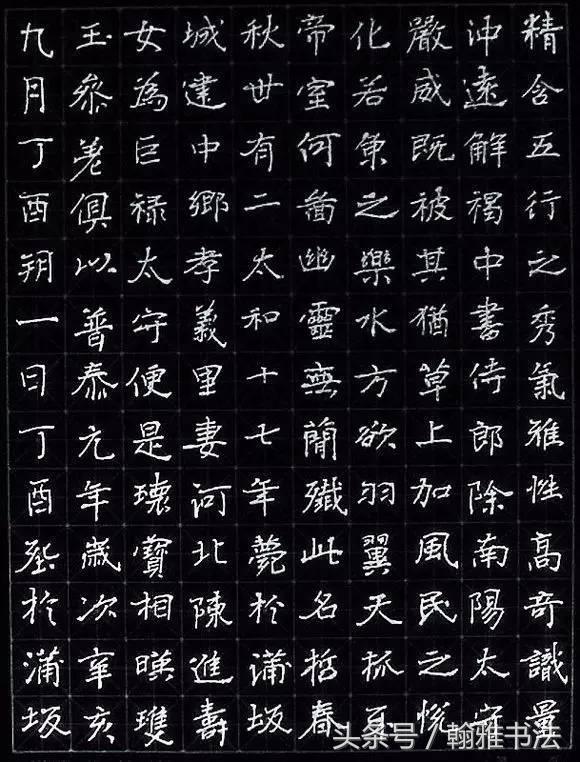 精含五行之秀氣雅性高奇識量
沖遠解褐中書侍郎除南陽太守
嚴威既被其猶草上加風民之悅
化若魚之樂水方欲羽翼天抓
帝室何啚幽靈無簡殲此名哲春
秋世有二太和十七年薨於蒲坂
城建中鄉孝義里妻河北陳進壽
女為巨祿太守便是瓌寶相暎
玉參差俱以普泰元年歲次辛亥
九月丁酉朔一日丁酉葬於蒲坂
头条号/翰雅书法